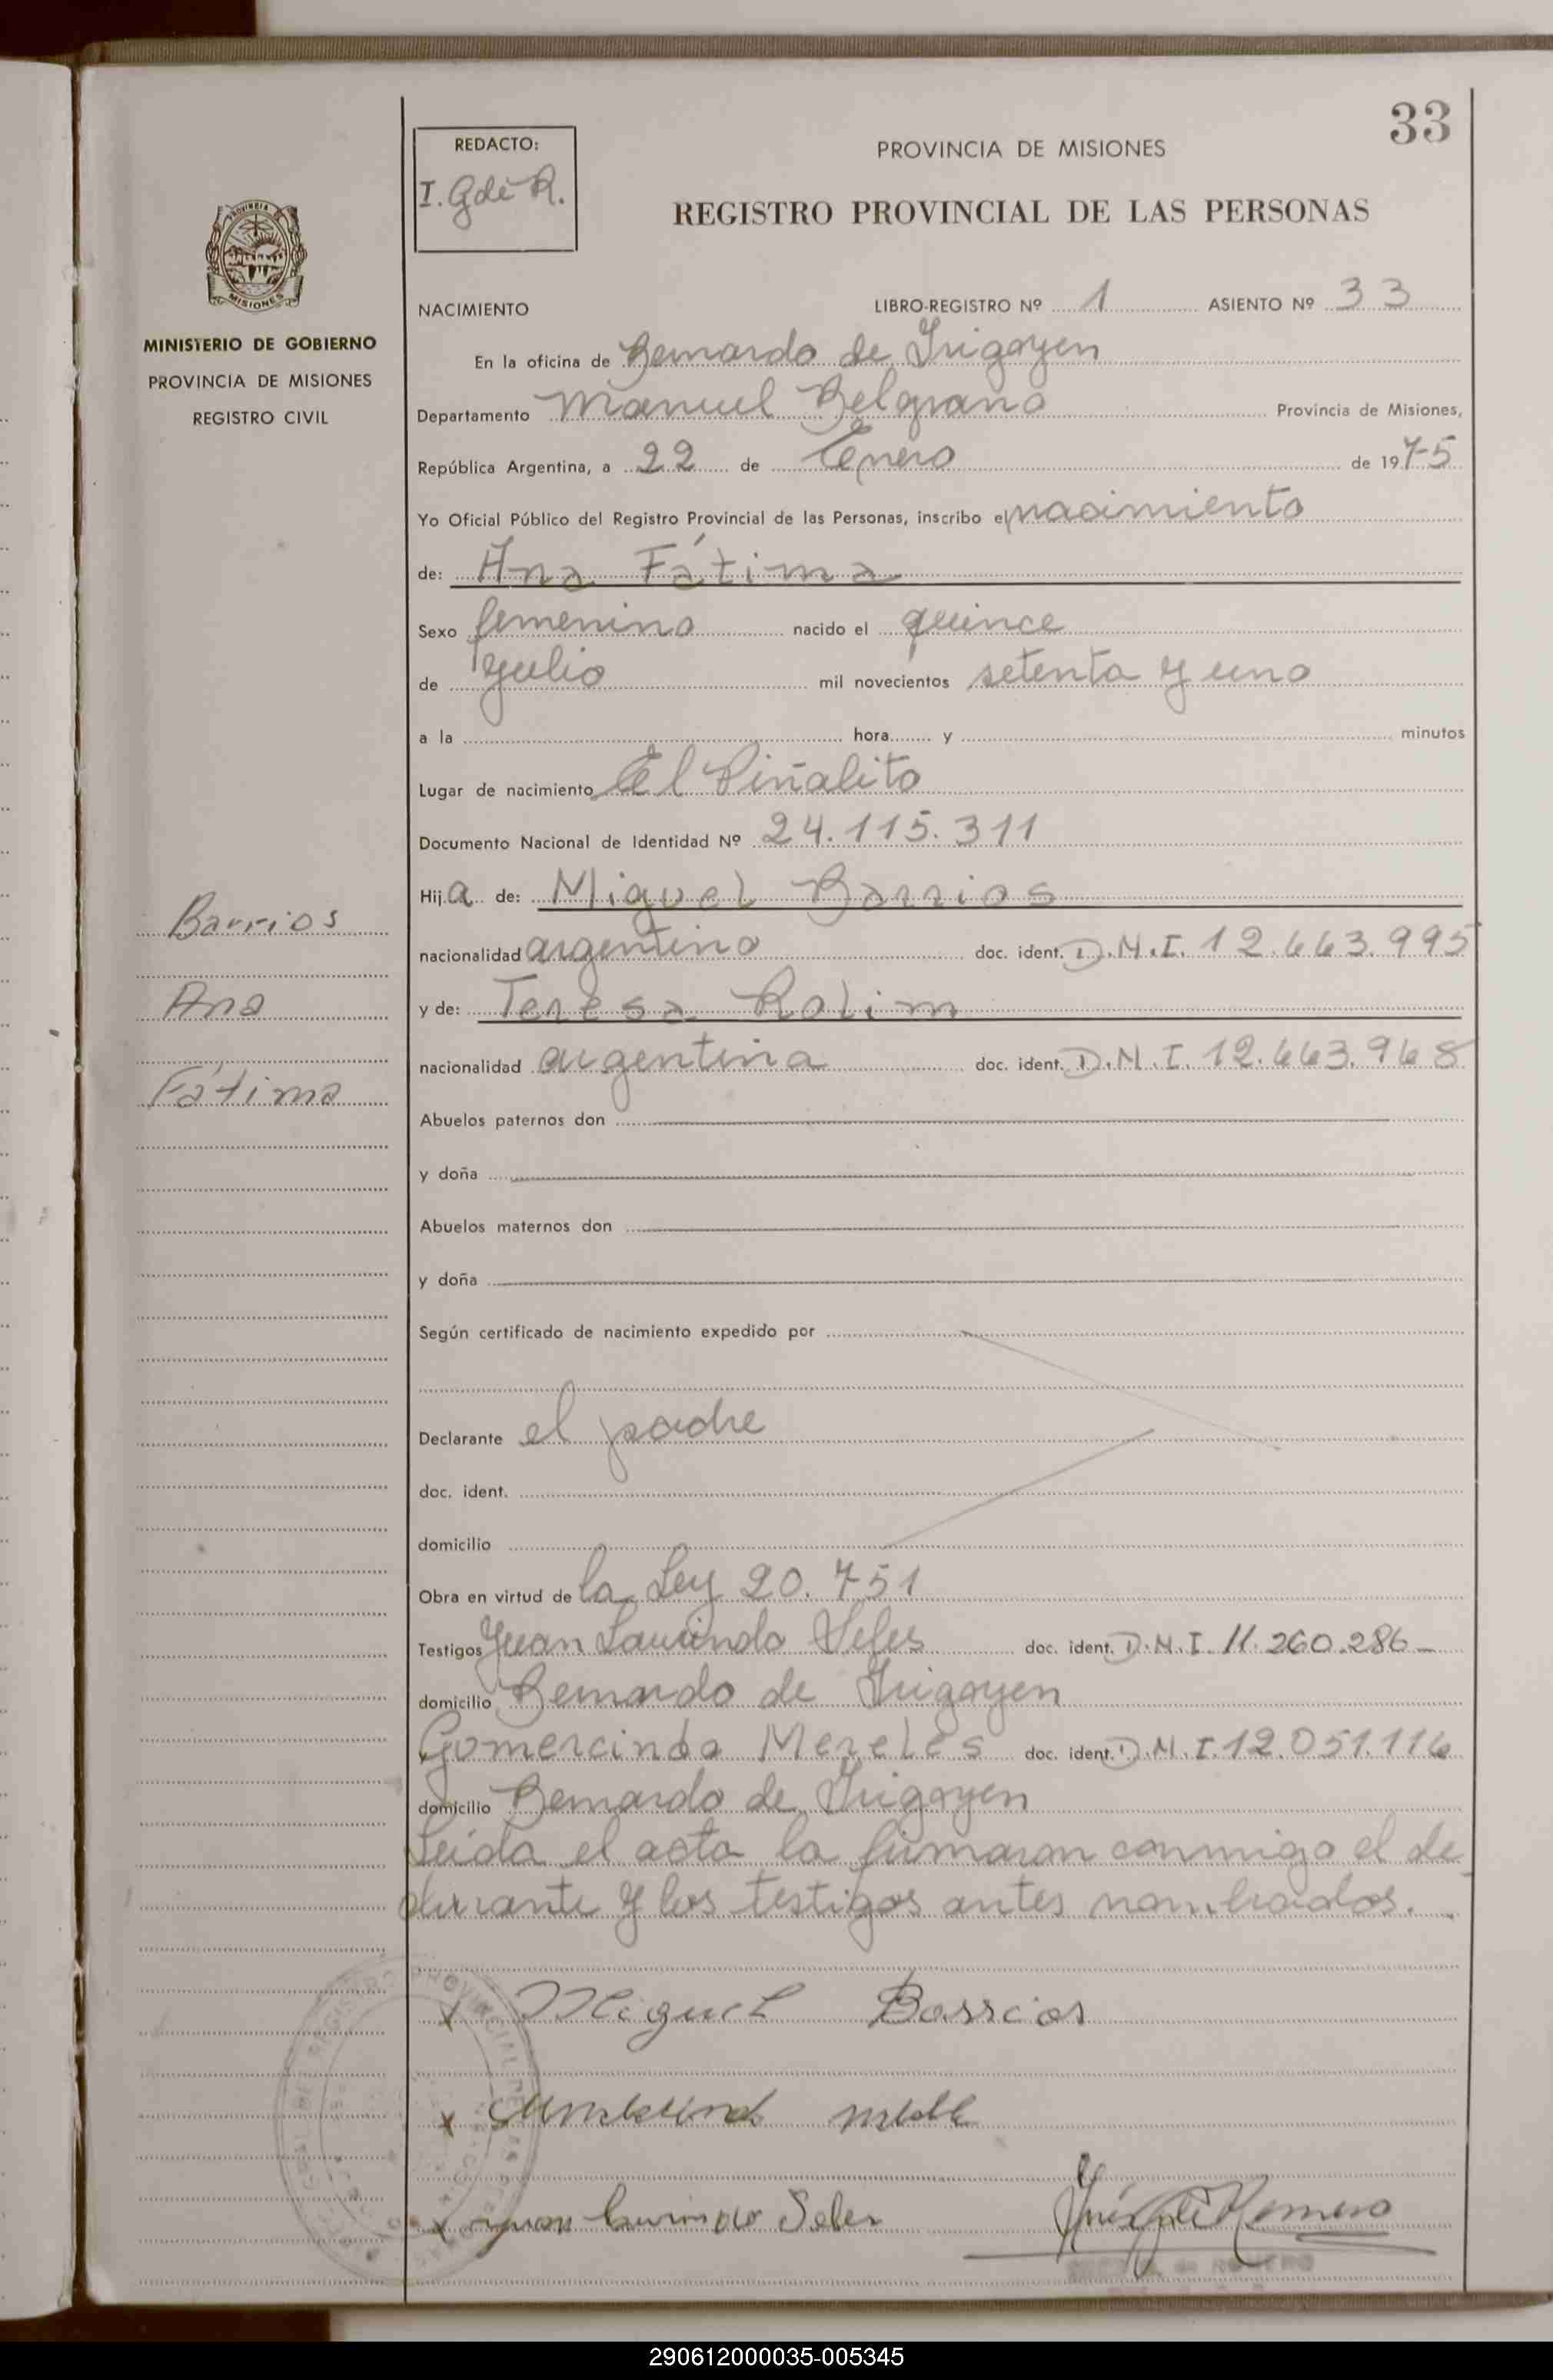 33
REDACTO:
I. G de R.
PROVINCIA DE MISIONES
REGISTRO PROVINCIAL DE LAS PERSONAS
PROVINCIA
MISIONES
MINISTERIO DE GOBIERNO
PROVINCIA DE MISIONES
REGISTRO CIVIL
NACIMIENTO LIBRO-REGISTRO Nº 1 ASIENTO Nº 33
En la oficina de Bernardo de Irigoyen
Departamento Manuel Belgrano Provincia de Misiones,
República Argentina, a 22 de Enero de 1975
Yo Oficial Público del Registro Provincial de las Personas, inscribo el nacimiento
de: Ana Fátima
Sexo femenino nacido el quince
de julio mil novecientos setenta y uno
a la hora y minutos
Lugar de nacimiento El Piñalito
Documento Nacional de Identidad Nº 24.115.311
Hija de: Miguel Barrios
nacionalidad argentino doc. ident. D.N.I. 12.663.995
y de: Teresa Rolim
nacionalidad argentina doc. ident. D.N.I. 12.663.968
Barrios
Ana
Fátima
Abuelos paternos don
y doña
Abuelos maternos don
y doña
Según certificado de nacimiento expedido por
Declarante el padre
doc. ident.
domicilio
Obra en virtud de la Ley 20.751
Testigos Juan Laurindo Seles doc. ident. D.N.I. 11.260.286-
domicilio Bernardo de Irigoyen
Gomercindo Mereles doc. ident. D.N.I. 12.051.116
domicilio Bernardo de Irigoyen
Leida el acta la firmaron conmigo el de
clarante y los testigos antes nombrados.
x Miguel Barrios
x
x Juan Laurindo Seles Inés G de Romero
de ROMERO
290612000035-005345